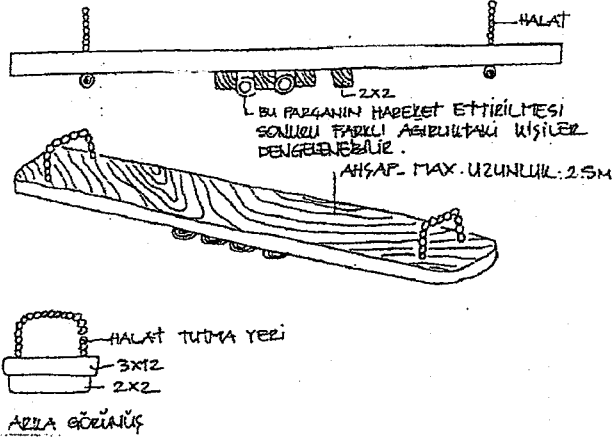 HALAT
2x2
BU PARÇANIN HAREKET ETTİRİLMESİ
SONUCU FARKLI AĞIRLIKTAKİ KİŞİLER
DENGELENEBİLİR.
AHŞAP - MAX. UZUNLUK: 2.5M
HALAT TUTMA YERİ
3x12
2x2
ARKA GÖRÜNÜŞ